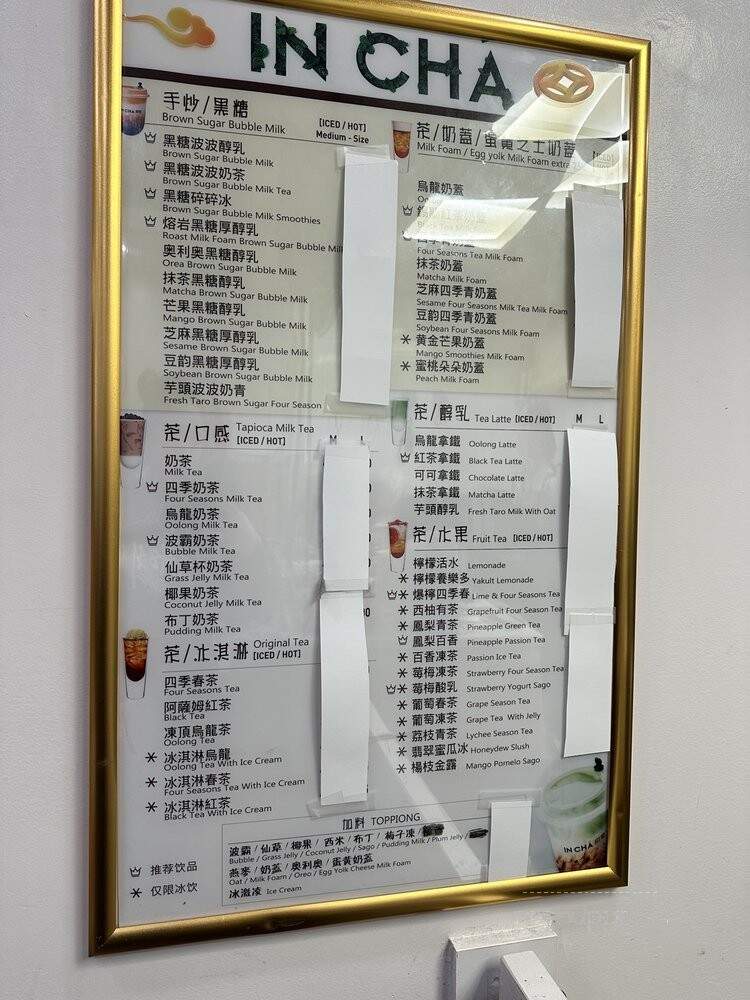 IN CHA
手炒/黑糖
Brown Sugar Bubble Milk
[ICED / HOT]
Medium - Size
黑糖波波醇乳
Brown Sugar Bubble Milk
黑糖波波奶茶
Brown Sugar Bubble Milk Tea
黑糖碎碎冰
Brown Sugar Bubble Milk Smoothies
熔岩黑糖厚醇乳
Roast Milk Foam Brown Sugar Bubble Milk
奧利奧黑糖醇乳
Orea Brown Sugar Bubble Milk
抹茶黑糖醇乳
Matcha Brown Sugar Bubble Milk
芒果黑糖醇乳
Mango Brown Sugar Bubble Milk
芝麻黑糖厚醇乳
Sesame Brown Sugar Bubble Milk
豆韵黑糖厚醇乳
Soybean Brown Sugar Bubble Milk
芋頭波波奶青
Fresh Taro Brown Sugar Four Season
茶/口感 Tapioca Milk Tea
[ICED / HOT] M L
奶茶
Milk Tea
四季奶茶
Four Seasons Milk Tea
烏龍奶茶
Oolong Milk Tea
波霸奶茶
Bubble Milk Tea
仙草杯奶茶
Grass Jelly Milk Tea
椰果奶茶
Coconut Jelly Milk Tea
布丁奶茶
Pudding Milk Tea
茶/冰淇淋 Original Tea
[ICED / HOT]
四季春茶
Four Seasons Tea
阿薩姆紅茶
Black Tea
凍頂烏龍茶
Oolong Tea
* 冰淇淋烏龍
Oolong Tea With Ice Cream
* 冰淇淋春茶
Four Seasons Tea With Ice Cream
* 冰淇淋紅茶
Black Tea With Ice Cream
茶/奶蓋/蛋黃芝士奶蓋
Milk Foam / Egg yolk Milk Foam extra
烏龍奶蓋
四季青奶蓋
Four Seasons Tea Milk Foam
抹茶奶蓋
Matcha Milk Foam
芝麻四季青奶蓋
Sesame Four Seasons Milk Tea Milk Foam
豆韵四季青奶蓋
Soybean Four Seasons Milk Foam
* 黄金芒果奶蓋
Mango Smoothies Milk Foam
* 蜜桃朵朵奶蓋
Peach Milk Foam
茶/醇乳 Tea Latte [ICED / HOT] M L
烏龍拿鐵 Oolong Latte
紅茶拿鐵 Black Tea Latte
可可拿鐵 Chocolate Latte
抹茶拿鐵 Matcha Latte
芋頭醇乳 Fresh Taro Milk With Oat
茶/水果 Fruit Tea [ICED / HOT]
檸檬活水 Lemonade
* 檸檬養樂多 Yakult Lemonade
* 爆檸四季春 Lime & Four Seasons Tea
* 西柚有茶 Grapefruit Four Season Tea
* 鳳梨青茶 Pineapple Green Tea
鳳梨百香 Pineapple Passion Tea
* 百香凍茶 Passion Ice Tea
* 莓梅凍茶 Strawberry Four Season Tea
* 莓梅酸乳 Strawberry Yogurt Sago
* 葡萄春茶 Grape Season Tea
* 葡萄凍茶 Grape Tea With Jelly
* 荔枝青茶 Lychee Season Tea
* 翡翠蜜瓜冰 Honeydew Slush
* 楊枝金露 Mango Pomelo Sago
加料 TOPPIONG
波霸 / 仙草 / 椰果 / 西米 / 布丁 / 梅子凍 /
Bubble / Grass Jelly / Coconut Jelly / Sago / Pudding Milk / Plum Jelly /
燕麥 / 奶蓋 / 奧利奧 / 蛋黄奶蓋
Oat / Milk Foam / Oreo / Egg Yolk Cheese Milk Foam
冰激凌 Ice Cream
推荐饮品
* 仅限冰饮
IN CHA